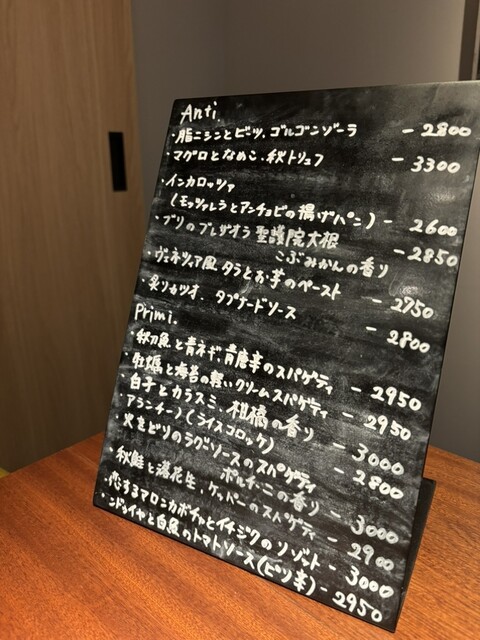 Anti.
・脂ニシンとビーツ、ゴルゴンゾーラ -2800
・マグロとなめこ、秋トリュフ -3300
・インカロッツァ
(モッツァレラとアンチョビの揚げパン) -2600
・ブリのブレザオラ 聖護院大根
こぶみかんの香り -2850
・ヴェネツィア風 タラとお芋のペースト -2750
・炙りカツオ、タプナードソース -2800
Primi.
・秋刀魚と青ネギ、青唐辛のスパゲティ -2950
・牡蠣と海苔の軽いクリームスパゲティ -2950
・白子とカラスミ、柑橘の香り -3000
・アランチーノ(ライスコロッケ) -2800
・火を どりのラグーソースのスパゲティ
ポルチーニの香り -3000
・秋鮭と落花生、ケッパーのスパゲティ -2900
・恋するマロンカボチャとイチジクのリゾット -3000
・ンドゥイヤと白魚のトマトソース(ピリ辛) -2950